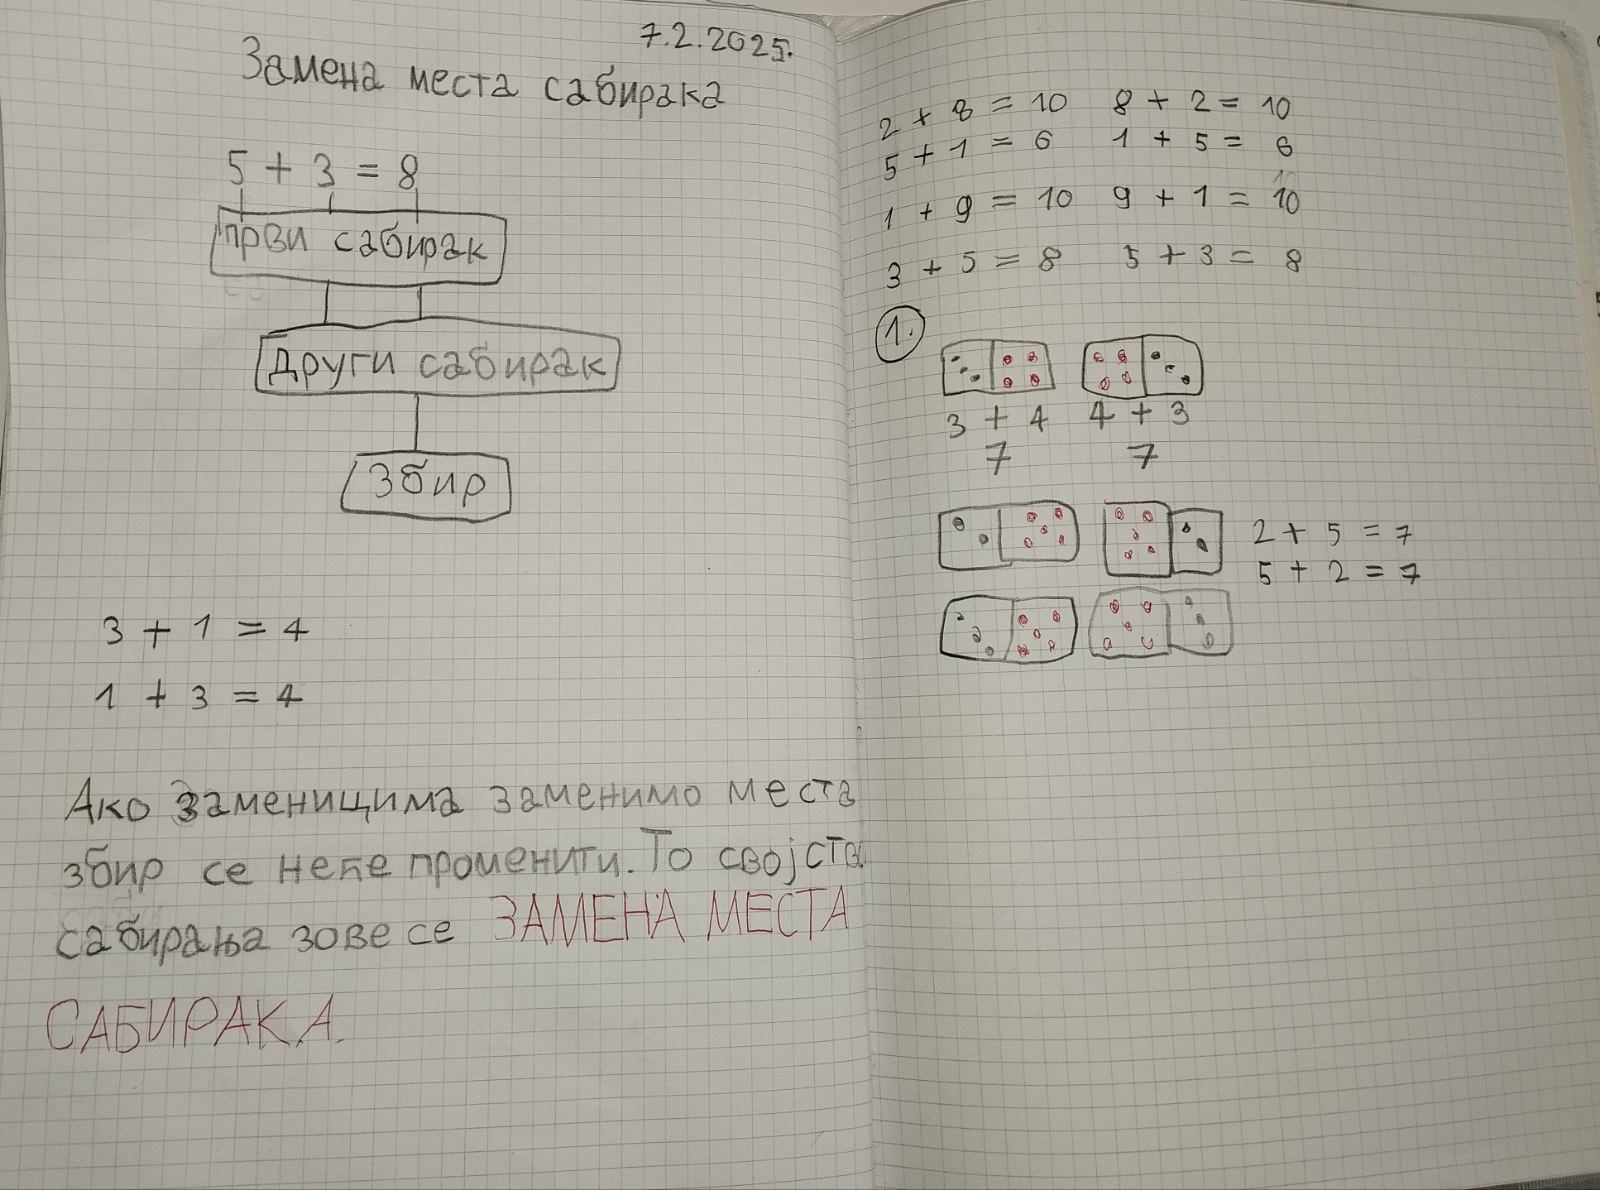 7.2.2025.
Замена места сабирака
5 + 3 = 8
први сабирак
други сабирак
Збир
3 + 1 = 4
1 + 3 = 4
Ако заменицима заменимо места
збир се неће променити. То својства
сабирања зове се ЗАМЕНА МЕСТА
САБИРАКА.
2 + 8 = 10 8 + 2 = 10
5 + 1 = 6 1 + 5 = 6
1 + 9 = 10 9 + 1 = 10
3 + 5 = 8 5 + 3 = 8
1.
3 + 4 4 + 3
7 7
2 + 5 = 7
5 + 2 = 7